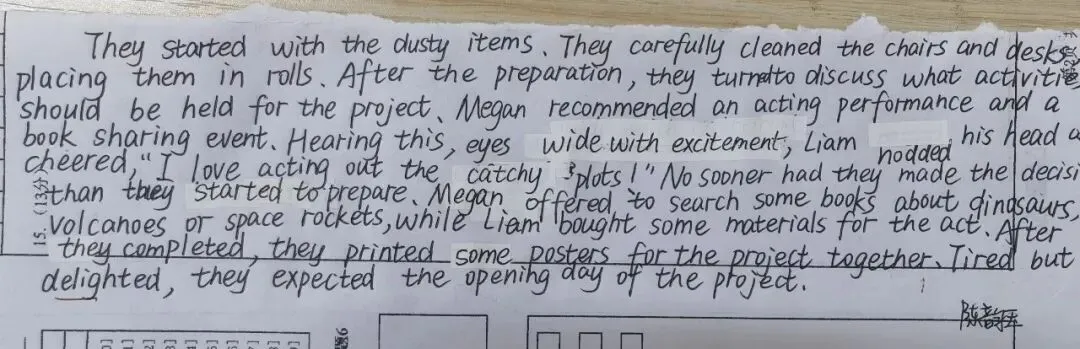 They started with the dusty items. They carefully cleaned the chairs and desks,
placing them in rolls. After the preparation, they turned to discuss what activiti
should be held for the project. Megan recommended an acting performance and a
book sharing event. Hearing this, eyes wide with excitement, Liam nodded his head a
cheered, "I love acting out the catchy plots!" No sooner had they made the decisi
than they started to prepare. Megan offered to search some books about dinosaurs,
volcanoes or space rockets, while Liam bought some materials for the act. After
they completed, they printed some posters for the project together. Tired but
delighted, they expected the opening day of the project.